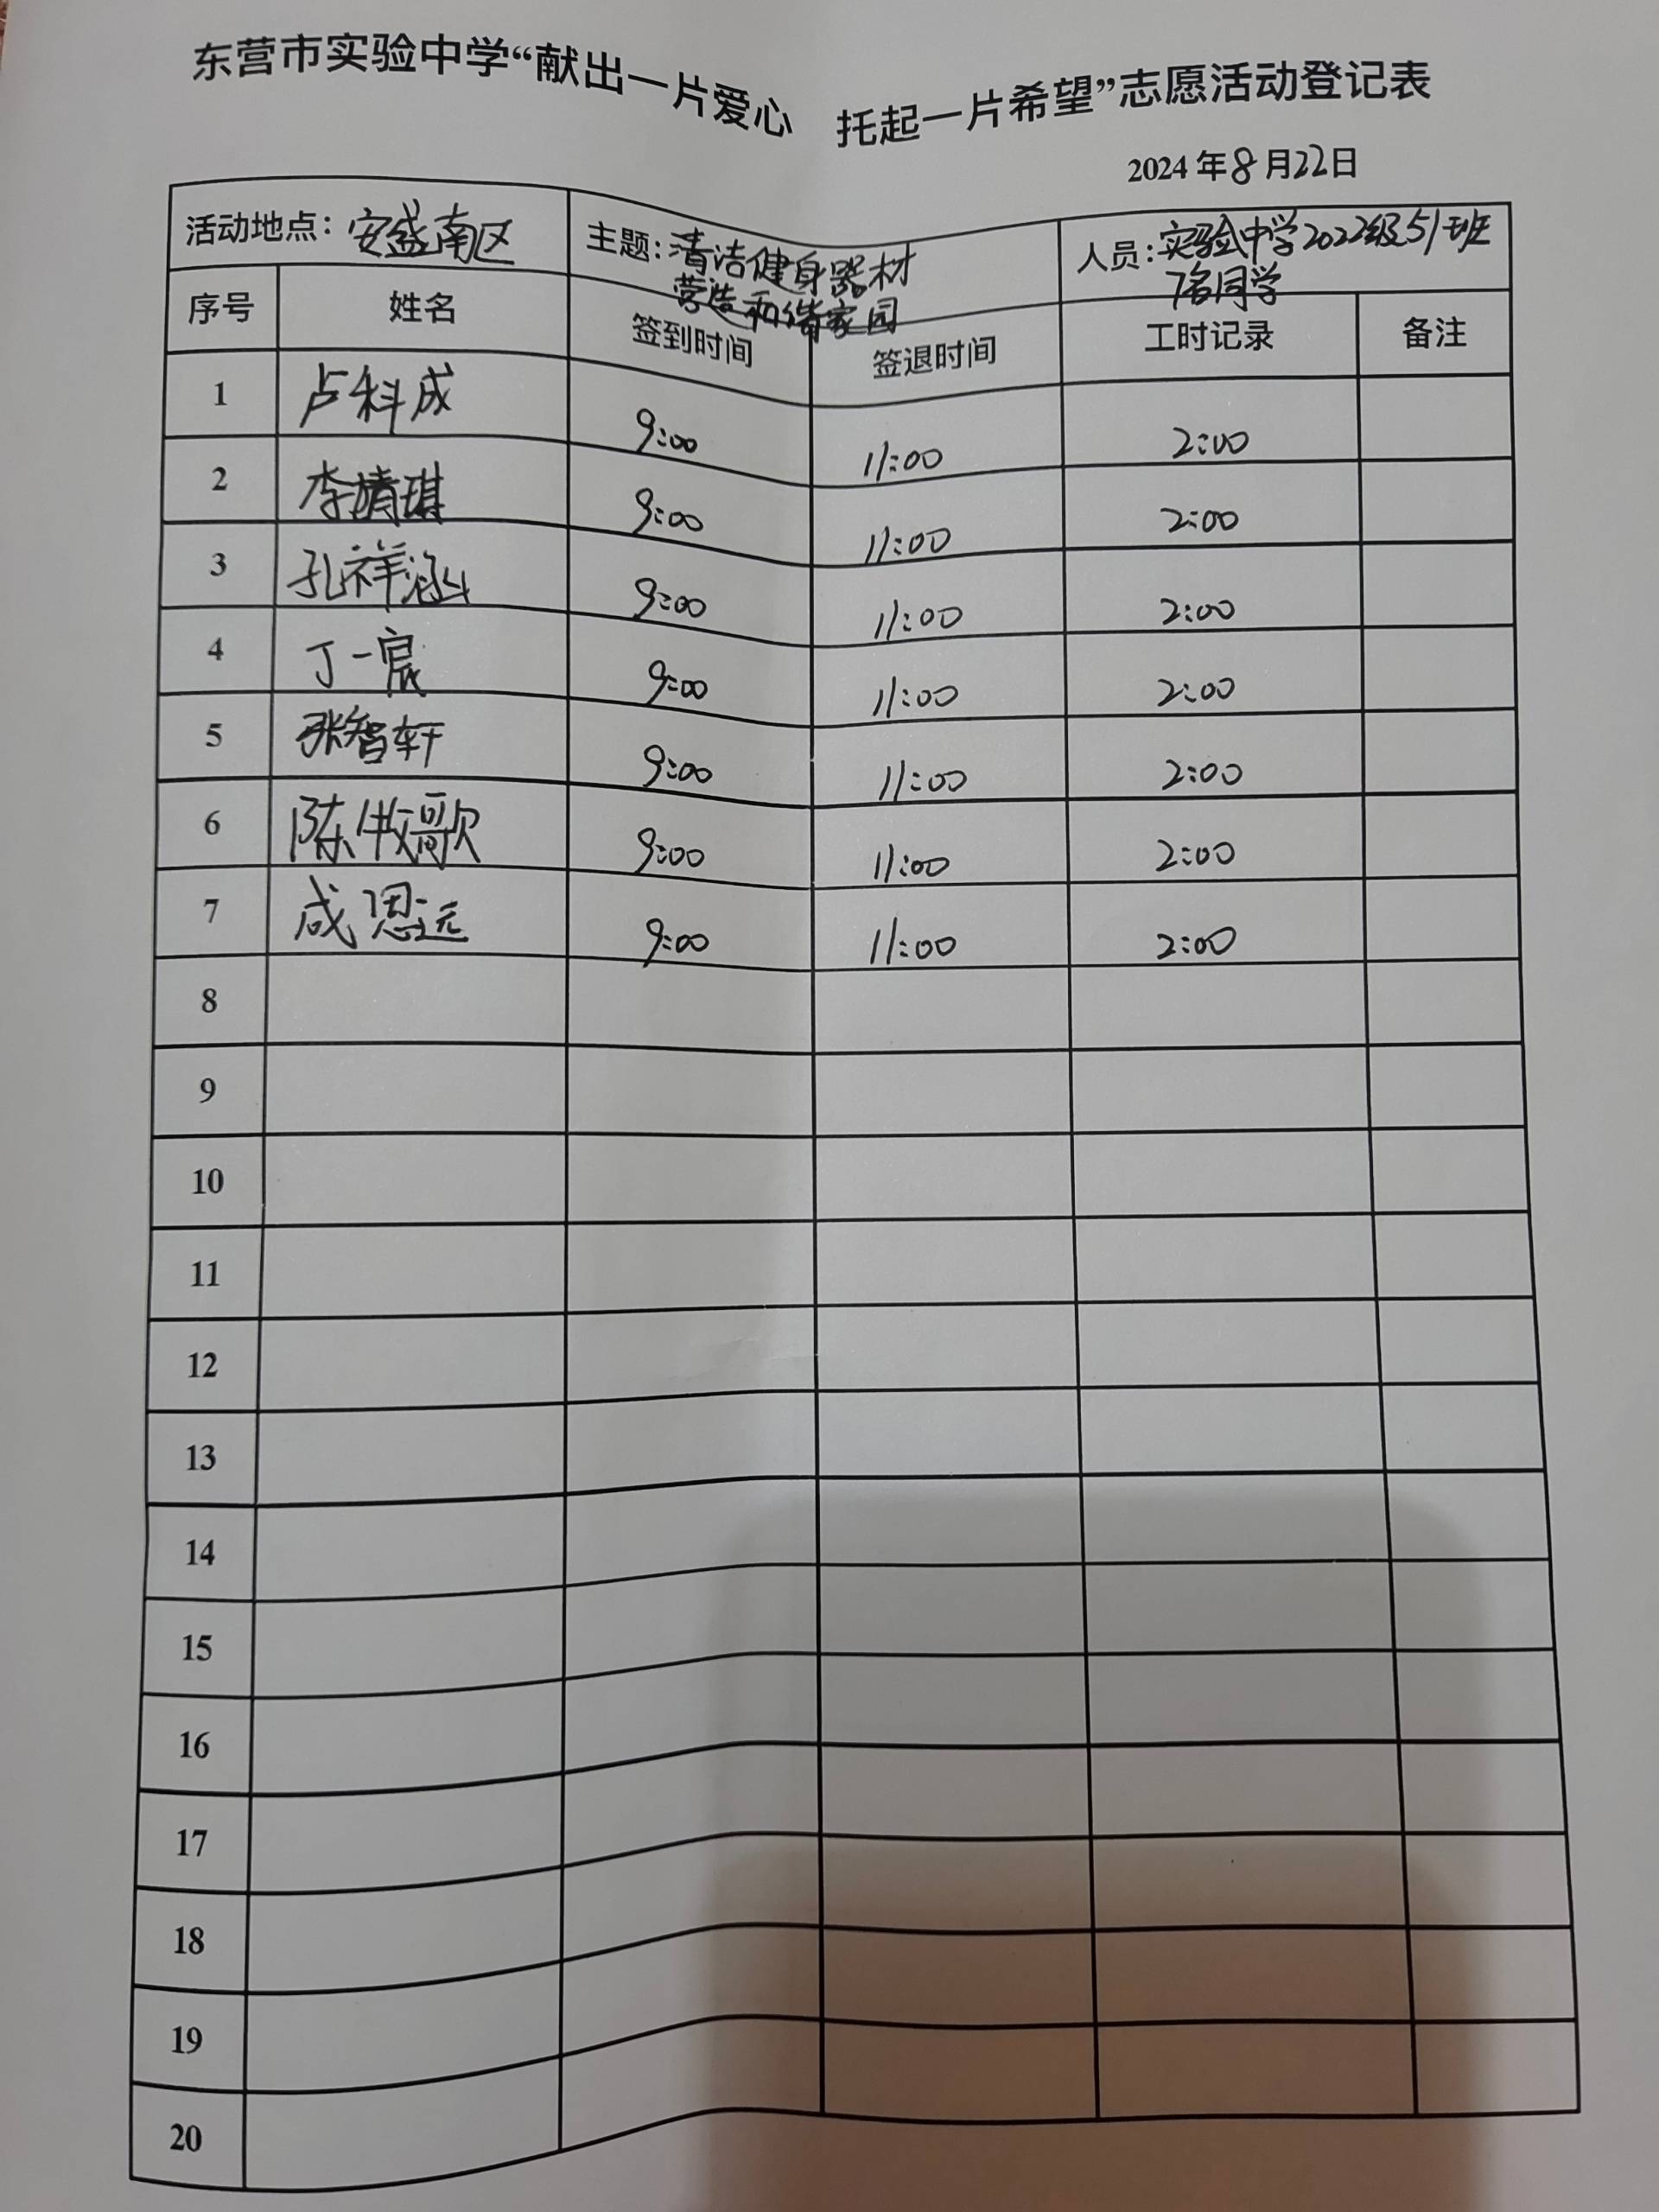 东营市实验中学“献出一片爱心 托起一片希望”志愿活动登记表
2024年8月22日
活动地点：安盛南区 主题：清洁健身器材 人员：实验中学2022级51班
营造和谐家园 7名同学
序号 姓名 签到时间 签退时间 工时记录 备注
1 卢科成 9:00 11:00 2:00
2 李婧琪 9:00 11:00 2:00
3 孔祥涵 9:00 11:00 2:00
4 丁一宸 9:00 11:00 2:00
5 张智轩 9:00 11:00 2:00
6 陈牧歌 9:00 11:00 2:00
7 成思远 9:00 11:00 2:00
8
9
10
11
12
13
14
15
16
17
18
19
20